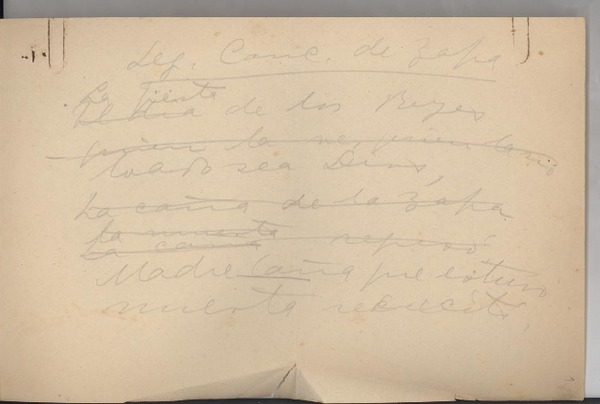 Leg. Canc. de Zapa
La fiesta
El dia de los Reyes
quien la ve, quien la vio
loado sea Dios,
La caña de la Zapa
la muerta
La caña regresó
Madre Caña que estuvo
muerta